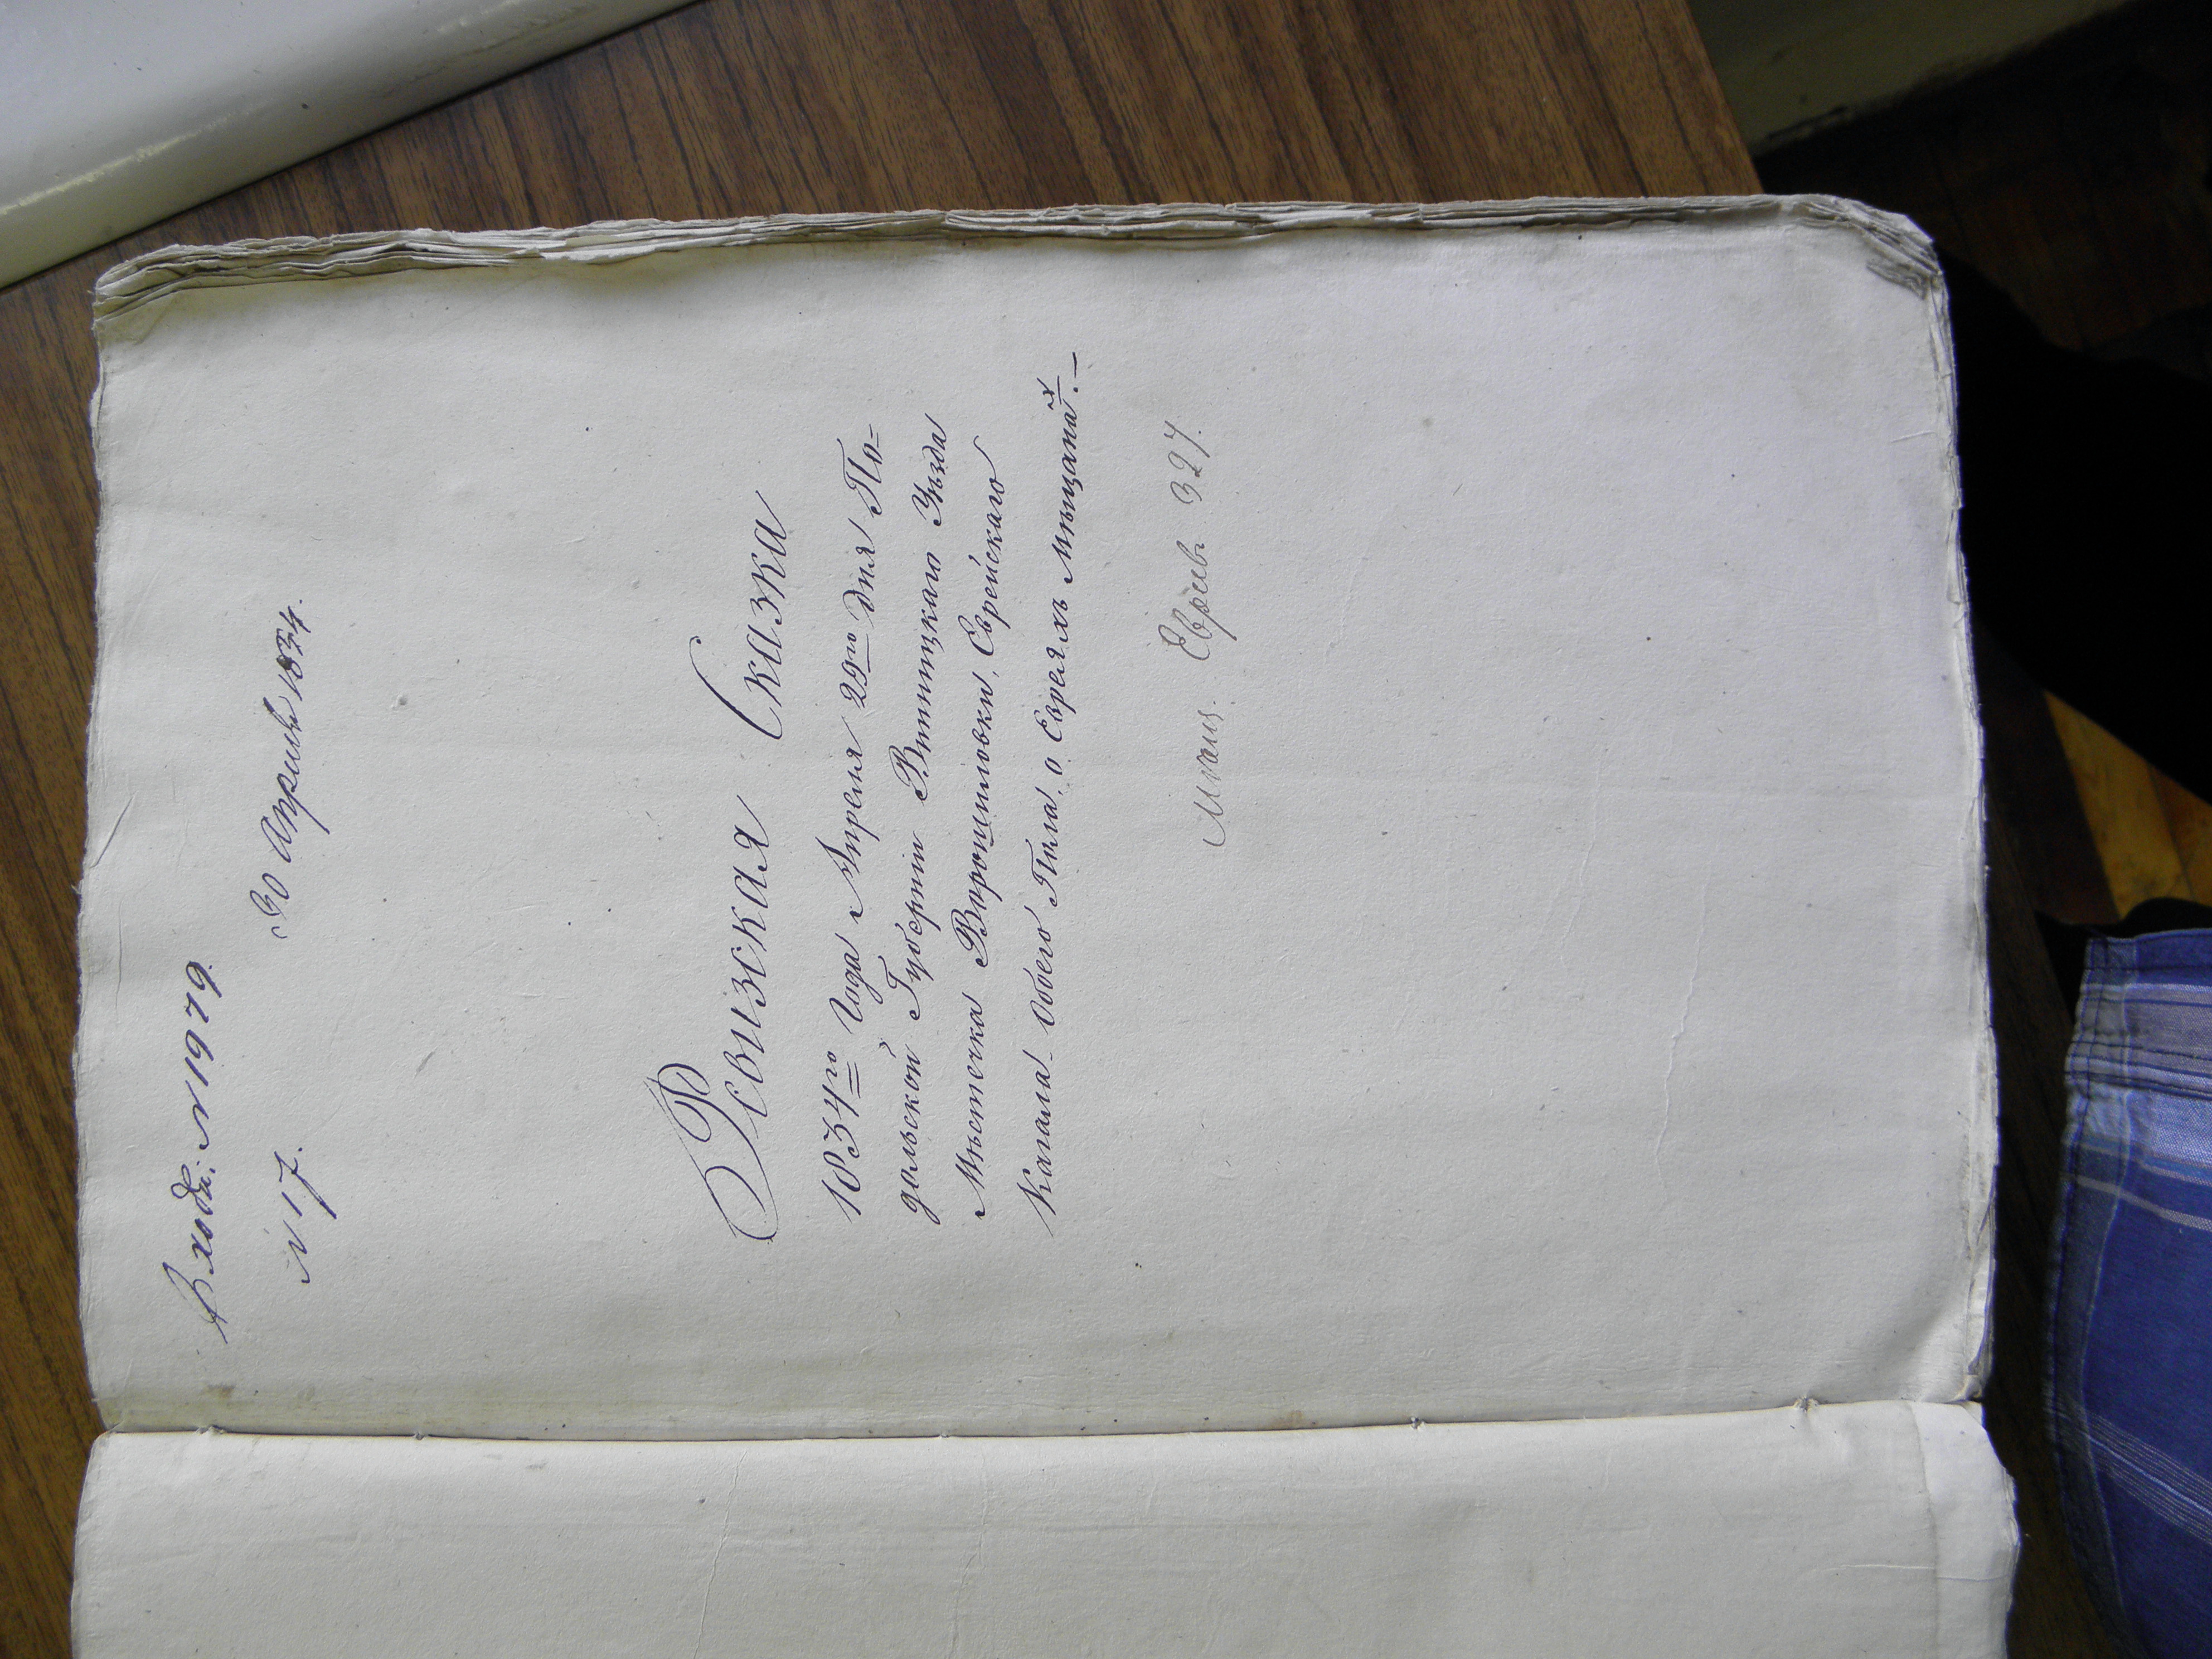 Входя: N 1979.
N 17.
30 Апреля 1834.
Ревизская Сказка
1834го Года Апреля 29го дня По=
дольской Губернии Винницкаго Уѣзда
Мѣстечка Ворошиловки, Еврейскаго
Кагала Обоего Пола, о Евреяхъ мѣщанахъ.
Евреев 327.